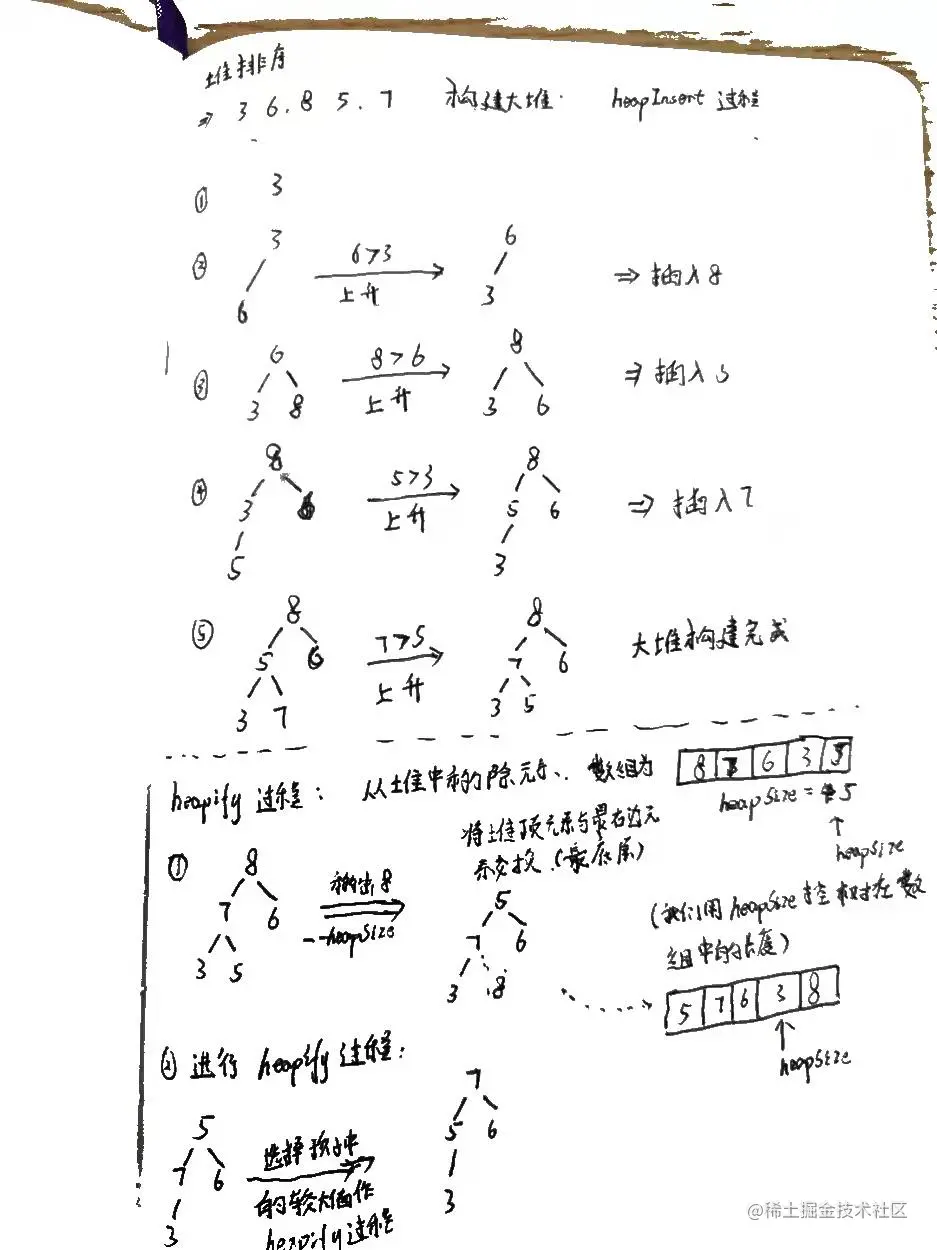 堆排序
⇒ 3 6. 8 5. 7 构建大堆. heapInsert 过程
① 3
② 3 6 6>3 上升 6 3 ⇒ 插入8
③ 6 3 8 8>6 上升 8 3 6 ⇒ 插入5
④ 8 3 5 5>3 上升 8 5 6 3 ⇒ 插入7
⑤ 8 5 6 3 7 7>5 上升 8 7 6 3 5 大堆构建完成
heapify 过程: 从堆中移除元素、数组为 8 7 6 3 5
heapSize = 5
heapSize
将堆顶元素与最右边元
素交换.(最底层)
① 8 7 6 3 5 移出8 --heapSize 5 7 6 3 8
(我们用heapSize控制堆在数
组中的长度)
5 7 6 3 8
heapSize
② 进行 heapify 过程:
5 7 6 3 选择孩子中 7 5 6 3
的较大值作
heapify过程
@稀土掘金技术社区